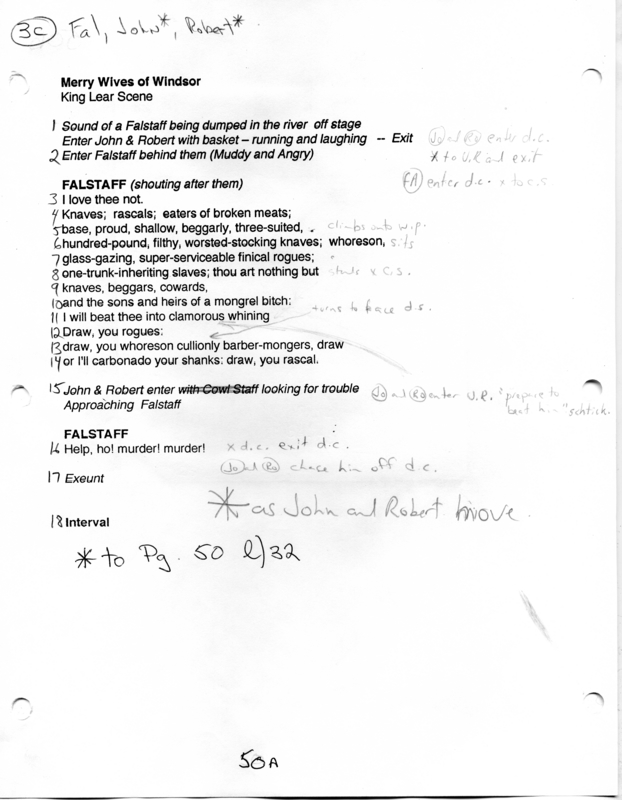 3C Fal, John*, Robert*
Merry Wives of Windsor
King Lear Scene
1 Sound of a Falstaff being dumped in the river off stage
Enter John & Robert with basket – running and laughing -- Exit (Jo) and (Ro) enter d.c.
2 Enter Falstaff behind them (Muddy and Angry) * to U.R and exit
FALSTAFF (shouting after them) (FA) enter d.c. x to c.s
3 I love thee not.
4 Knaves; rascals; eaters of broken meats;
5 base, proud, shallow, beggarly, three-suited, climbs onto w.p.
6 hundred-pound, filthy, worsted-stocking knaves; whoreson, sits
7 glass-gazing, super-serviceable finical rogues;
8 one-trunk-inheriting slaves; thou art nothing but stands x C.S.
9 knaves, beggars, cowards,
10 and the sons and heirs of a mongrel bitch: turns to face d.s.
11 I will beat thee into clamorous whining
12 Draw, you rogues:
13 draw, you whoreson cullionly barber-mongers, draw
14 or I'll carbonado your shanks: draw, you rascal.
15 John & Robert enter with Cowl Staff looking for trouble (Jo) and (Ro) enter U.R. "prepare to
Approaching Falstaff beat him" schtick.
FALSTAFF
16 Help, ho! murder! murder! x d.c. exit d.c.
(Jo) and (Ro) chase him off d.c.
17 Exeunt
* as John and Robert move
18 Interval
* to Pg. 50 l)32
50A